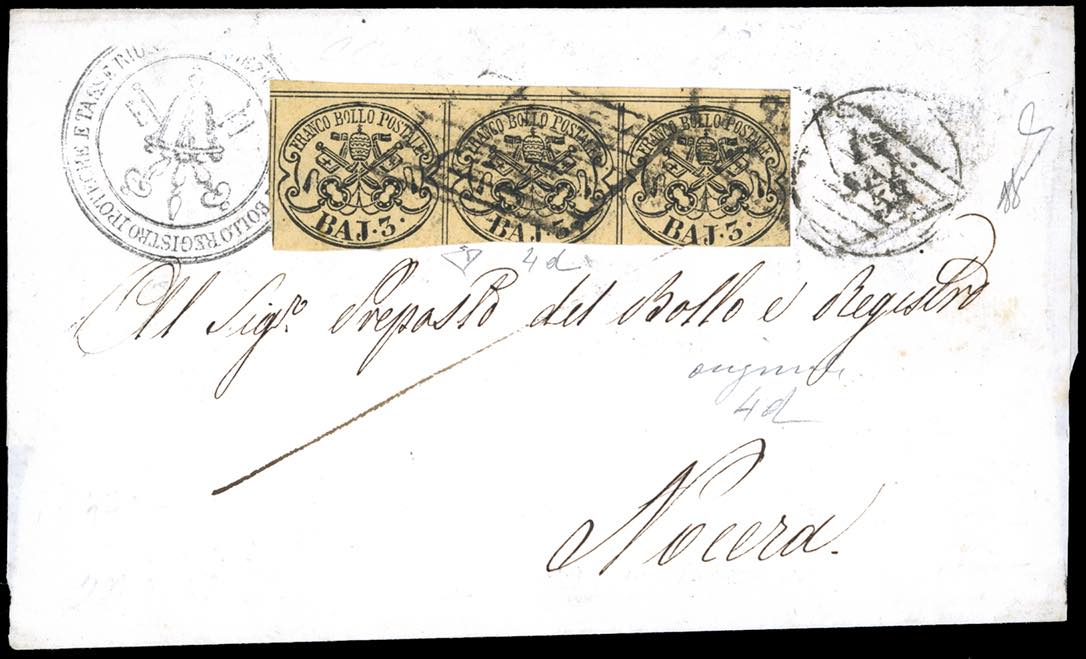 BOLLO REGISTRO IPOTECHE E TASSE RIUN
FRANCO BOLLO POSTALE
BAJ·3·
FRANCO BOLLO POSTALE
BAJ·3·
FRANCO BOLLO POSTALE
BAJ·3·
4d
Al Sigr. Preposto del Bollo e Registro
4d
Nocera.